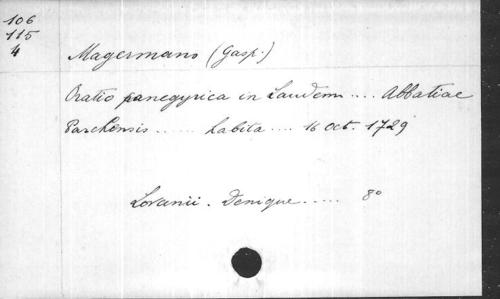 106
115
4
Magermans (Gasp.)
Oratio panegyrica in Laudem .... Abbatiae
Parchensis ...... habita .... 16 oct. 1729
Lovanii. Denique ..... 8°